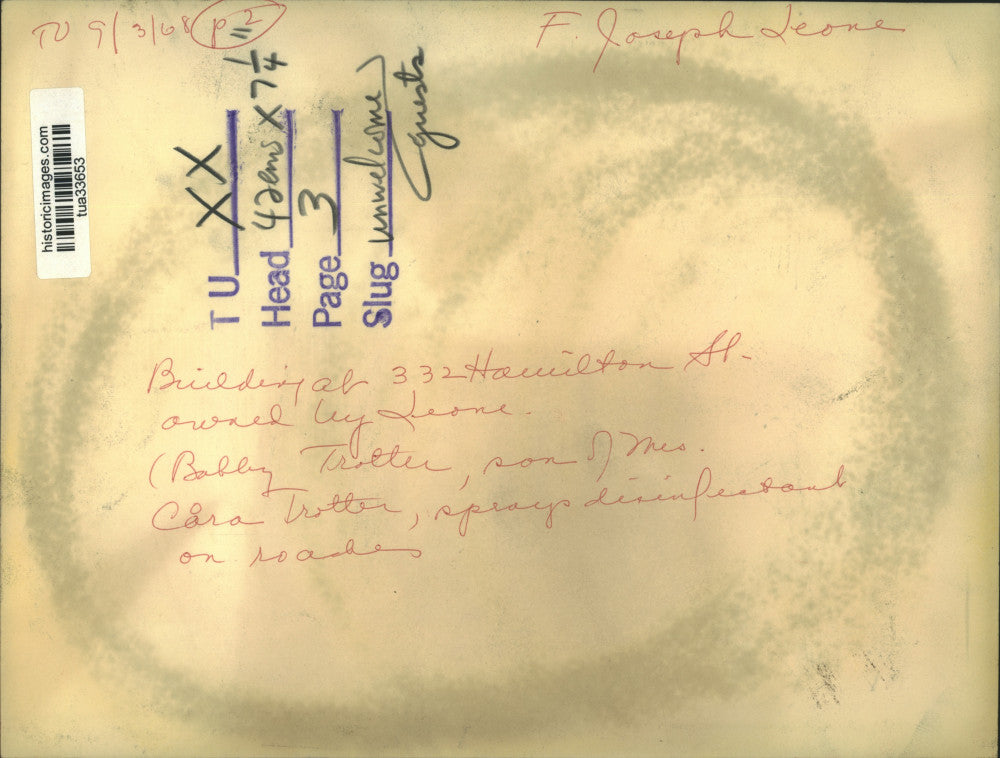 TU 9/3/68 p 2
F. Joseph Leone
historicimages.com
tua33653
TU XX
Head 42ems x 7 1/4"
Page 3
Slug unwelcome
guests
Building at 332 Hamilton St.
owned by Leone.
(Bobby Trotter, son of Mrs.
Cara Trotter, sprays disinfectant
on roaches